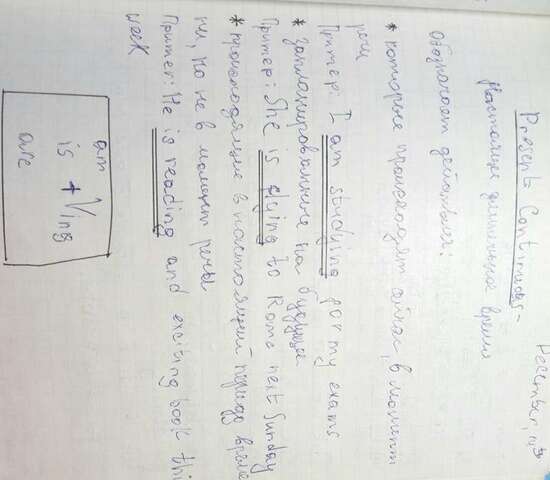 December,
Present Continuous -
Настоящее длительное время
Обозначает действия:
* которые происходят сейчас, в момент
речи
Пример: I am studying for my exams
* запланированные на будущее
Пример: She is flying to Rome next Sunday
* происходящие в настоящий период време
ни, но не в момент речи
Пример: He is reading and exciting book this
week
am
is + Ving
are